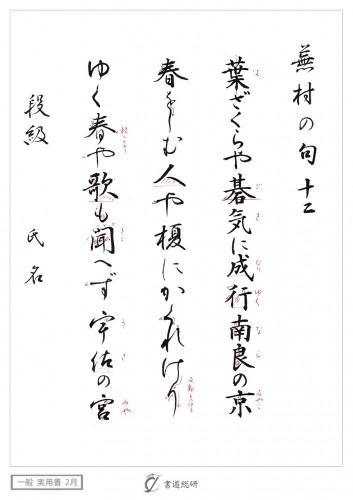 蕪村の句 十二
葉ざくらや碁気に成行南良の京
春をしむ人や榎にかくれけり
ゆく春や歌も聞へず宇佐の宮
段級 氏名
一般 実用書 2月
書道総研